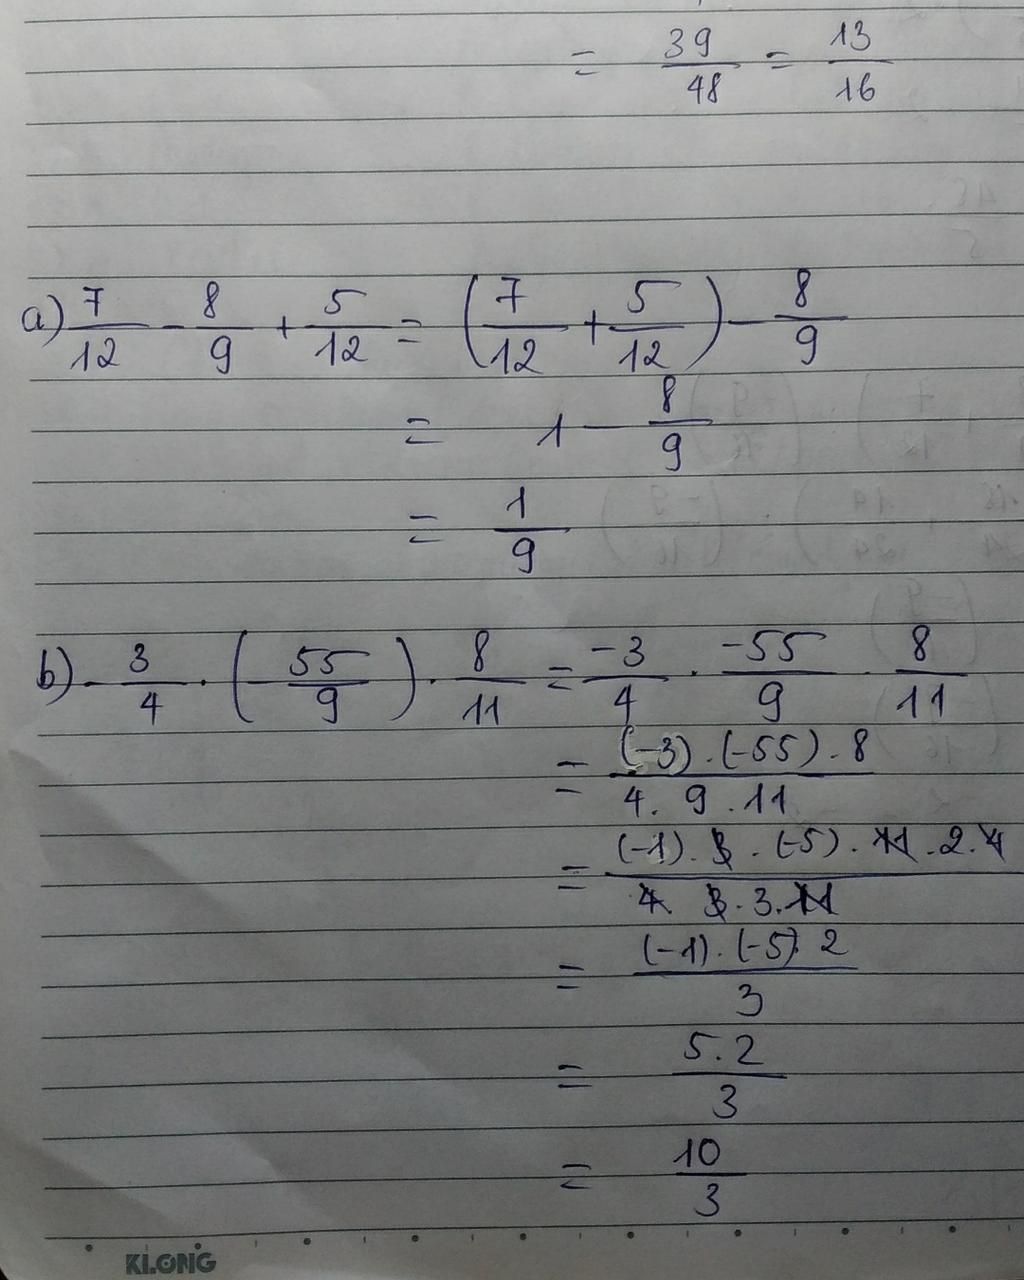 = 39/48 = 13/16
a) 7/12 - 8/9 + 5/12 = (7/12 + 5/12) - 8/9
= 1 - 8/9
= 1/9
b) - 3/4 . (- 55/9) . 8/11 = -3/4 . -55/9 . 8/11
= (-3) . (-55) . 8 / 4 . 9 . 11
= (-1) . 3 . (-5) . 11 . 2 . 4 / 4 . 3 . 3 . 11
= (-1) . (-5) . 2 / 3
= 5 . 2 / 3
= 10/3
KLONG